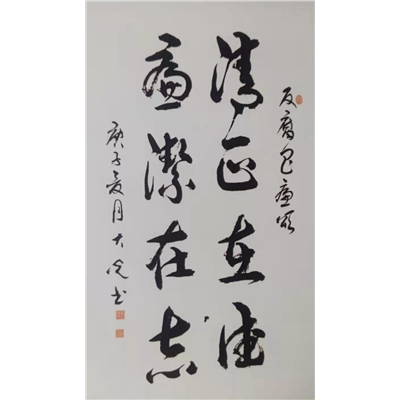 反腐倡廉颂
清正在德
廉潔在志
庚子夏月大光书